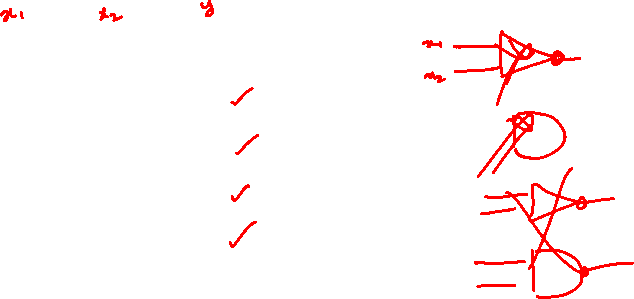 x1 x2 y
x1
x2